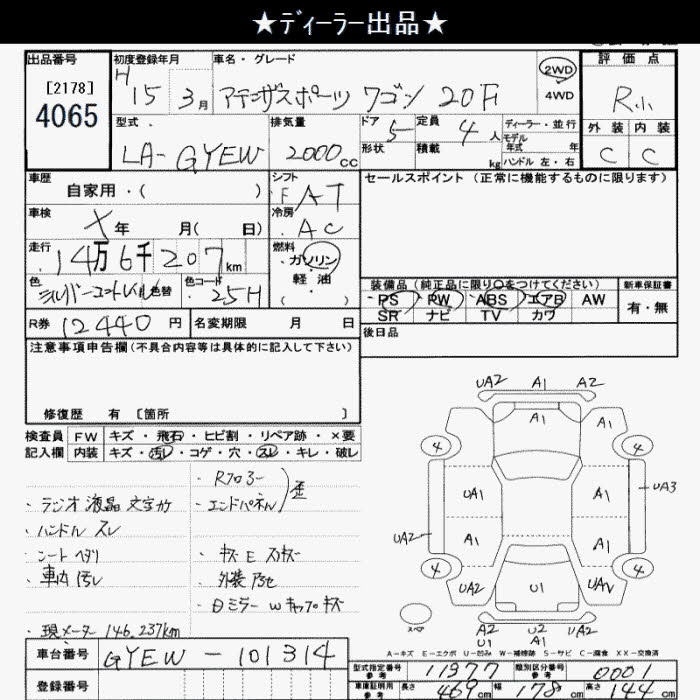 ★ディーラー出品★
出品番号
[2178]
4065
初度登録年月
H15 3月
車名・グレード
アテンザスポーツ ワゴン 20F
2WD
4WD
評価点
R小
外装 内装
C C
型式
LA-GYEW
排気量
2000cc
ドア 5
形状
定員 4人
積載 kg
ディーラー・並行
モデル年式 年
ハンドル 左・右
車歴
自家用・( )
シフト
F AT
車検
×年 月( 日)
冷房
AC
走行
14万6千207km
燃料
ガソリン
・軽油
( )
色
シルバー
色替
色コード
25H
R券 12440円
名変期限 月 日
セールスポイント(正常に機能するものに限ります)
装備品(純正品に限り○をつけてください)
PS PW ABS エアB AW
SR ナビ TV カワ
新車保証書
有・無
後日品
注意事項申告欄(不具合内容等は具体的に記入して下さい)
修復歴 有 〔箇所 〕
検査員記入欄
FW キズ・飛石・ヒビ割・リペア跡・×要
内装 キズ・汚レ・コゲ・穴・スレ・キレ・破レ
・ラジオ液晶文字カケ
・ハンドルスレ
・シートヘタリ
・車内汚レ
・現メーター146,237km
・Rフロアー
・エンドパネル
歪
・キズE スリキズ
・外装
・ミラーWキャップキズ
UA2 A1 A2
A1
A1 A1
4 4
UA1 A1
UA3
UA2
A1 A1
4 4
UA2 U1
スペア
A2 U2 UA2
U1 A1
A-キズ E-エクボ U-凹み W-補修跡 S-サビ C-腐食 XX-交換済
車台番号 GYEW-101314
登録番号
型式指定番号 参考 11977
類別区分番号 参考 0001
車庫証明用 参考 長さ 469cm 幅 178cm 高さ 144cm